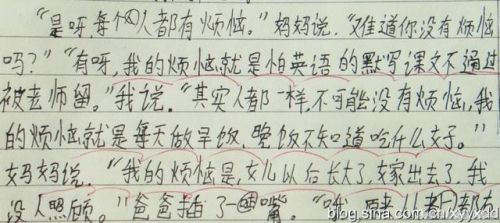 “是呀,每个人都有烦恼。”妈妈说,“难道你没有烦恼
吗?”“有呀,我的烦恼就是怕英语的默写课文不通过
被老师留。”我说。“其实人都一样,不可能没有烦恼,我
的烦恼就是每天做早饭,晚饭不知道吃什么好。”
妈妈说,“我的烦恼是,女儿以后长大了,嫁出去了,我
没人照顾。”爸爸插了一嘴。“哦,原来
blog.sina.com.cn/xyxxk